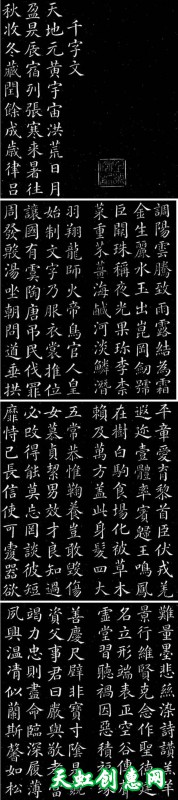 千字文
天地元黃宇宙洪荒日月
盈昃辰宿列張寒來暑往
秋收冬藏閏餘成歲律呂
調陽雲騰致雨露結為霜
金生麗水玉出崑岡劒號
巨闕珠稱夜光果珍李柰
菜重芥薑海鹹河淡鱗潛
羽翔龍師火帝鳥官人皇
始制文字乃服衣裳推位
讓國有虞陶唐弔民伐罪
周發殷湯坐朝問道垂拱
平章愛育黎首臣伏戎羌
遐邇壹體率賓歸王鳴鳳
在樹白駒食場化被草木
賴及萬方蓋此身髮四大
五常恭惟鞠養豈敢毀傷
女慕貞絜男效才良知過
必改得能莫忘罔談彼短
靡恃己長信使可覆器欲
難量墨悲絲染詩讚羔羊
景行維賢克念作聖德建
名立形端表正空谷傳聲
虛堂習聽禍因惡積福緣
善慶尺璧非寶寸陰是競
資父事君曰嚴與敬孝當
竭力忠則盡命臨深履薄
夙興溫凊似蘭斯馨如松
天虹创惠网